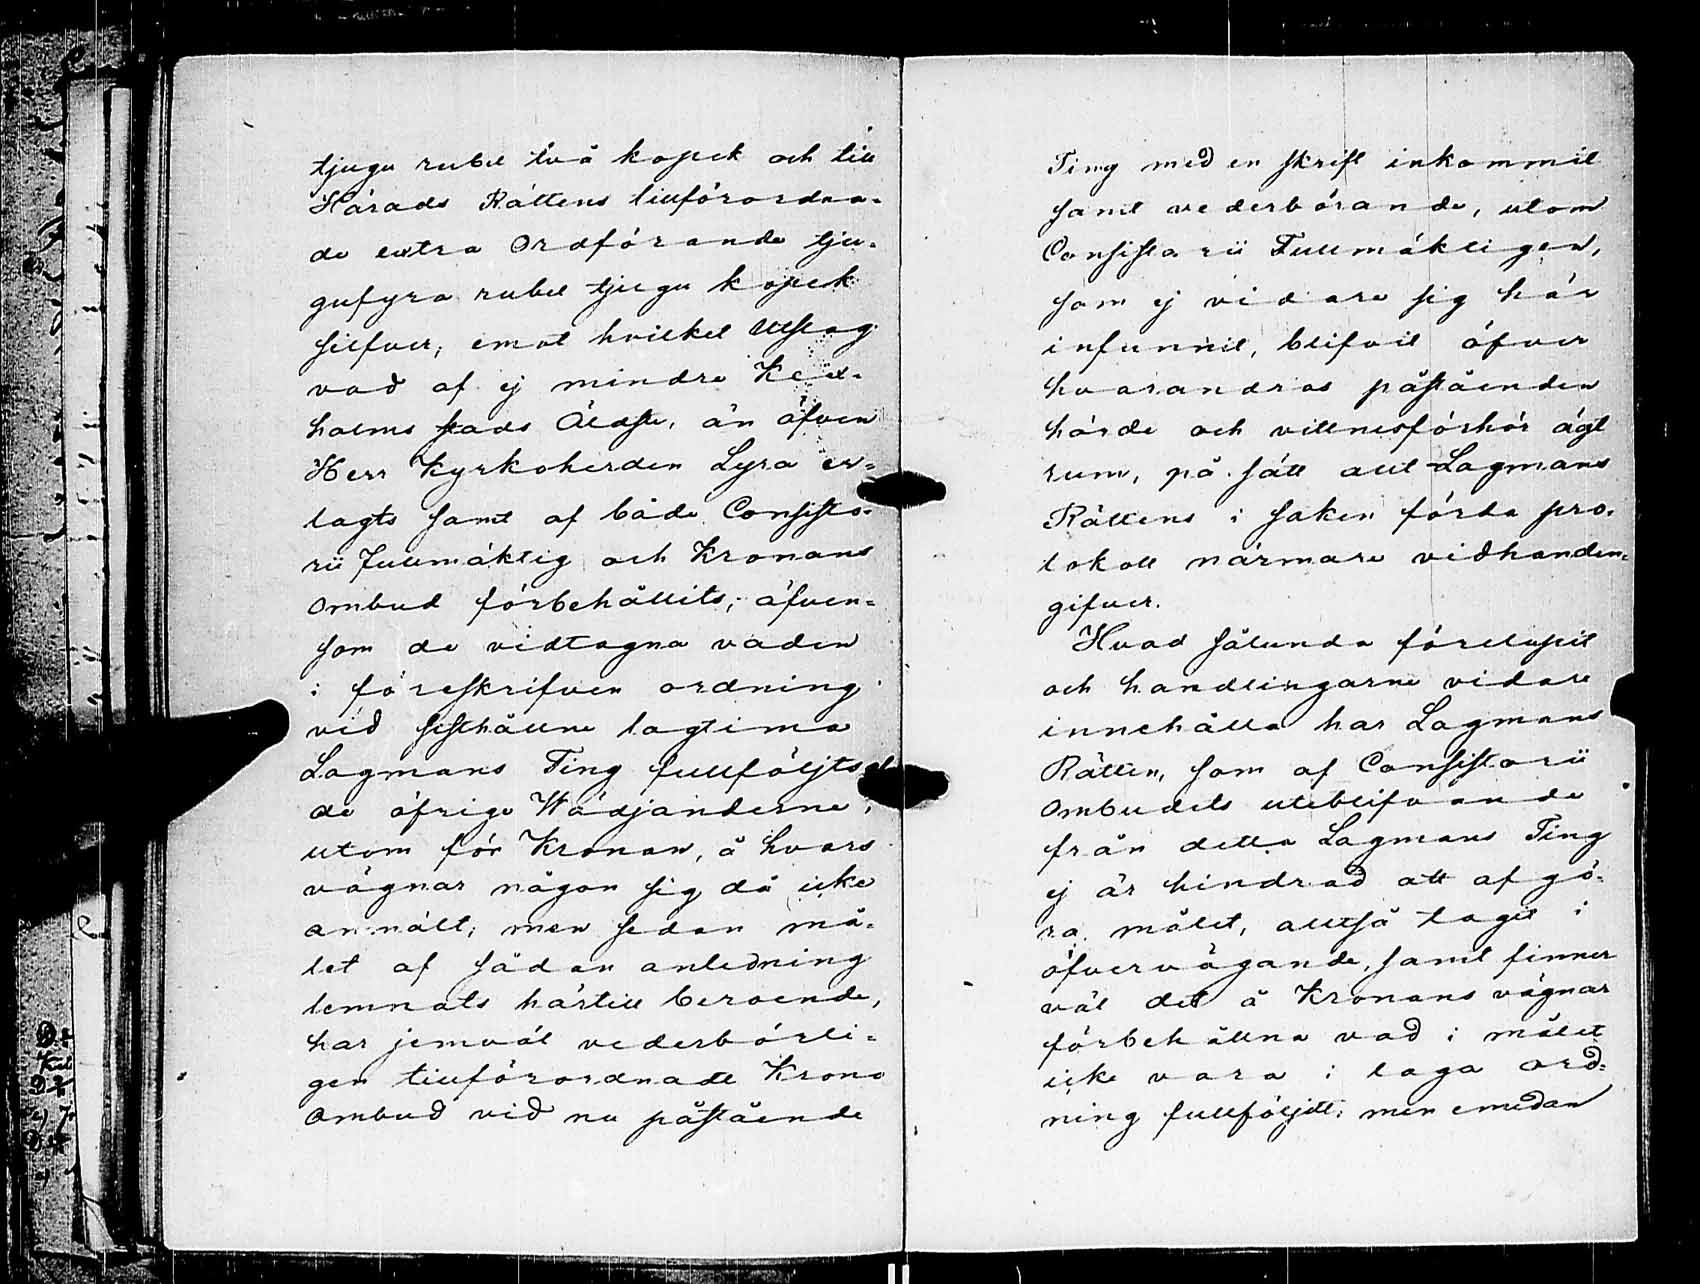 tjugu rubel två kopek och till
Härads Rättens tillförordna-
de extra Ordförande tju-
gufyra rubel tjugu kopek
silfver, emot hvilket Utslag
vad af ej mindre Kex-
holms stads Äldste, än äfven
Herr Kyrkoherden Lyra er-
lagts samt af både Consisto-
rii fullmäktig och Kronans
ombud förbehållits, äfven-
som de vidtagna vaden
i föreskrifven ordning
vid sisthållne lagtima
Lagmans Ting fullföljts af
de öfrige Wädjanderne,
utom för Kronan, å hvars
vägnar någon sig då icke
anmält; men sedan må-
let af sådan anledning
lemnats härtill beroende,
har jemväl vederbörli-
gen tillförordnadt Krono
ombud vid nu påstående
Ting med en skrift inkommit
samt vederbörande, utom
Consistorii Fullmäktigen,
som ej vidare sig här
infunnit, blifvit öfver
hvarandras påståenden
hörde och vittnesförhör ägt
rum, på sätt allt Lagmans
Rättens i saken förda pro-
tokoll närmare vidhanden-
gifver.
Hvad sålunda förelupit
och handlingarne vidare
innehålla har Lagmans
Rätten, som af Consistorii
ombudets uteblifvande
från detta Lagmans Ting
ej är hindrad att afgö-
ra målet, alltså tagit i
öfvervägande, samt finner
väl det å Kronans vägnar
förbehållna vad i målet
icke vara i laga ord-
ning fullföljdt; men emedan